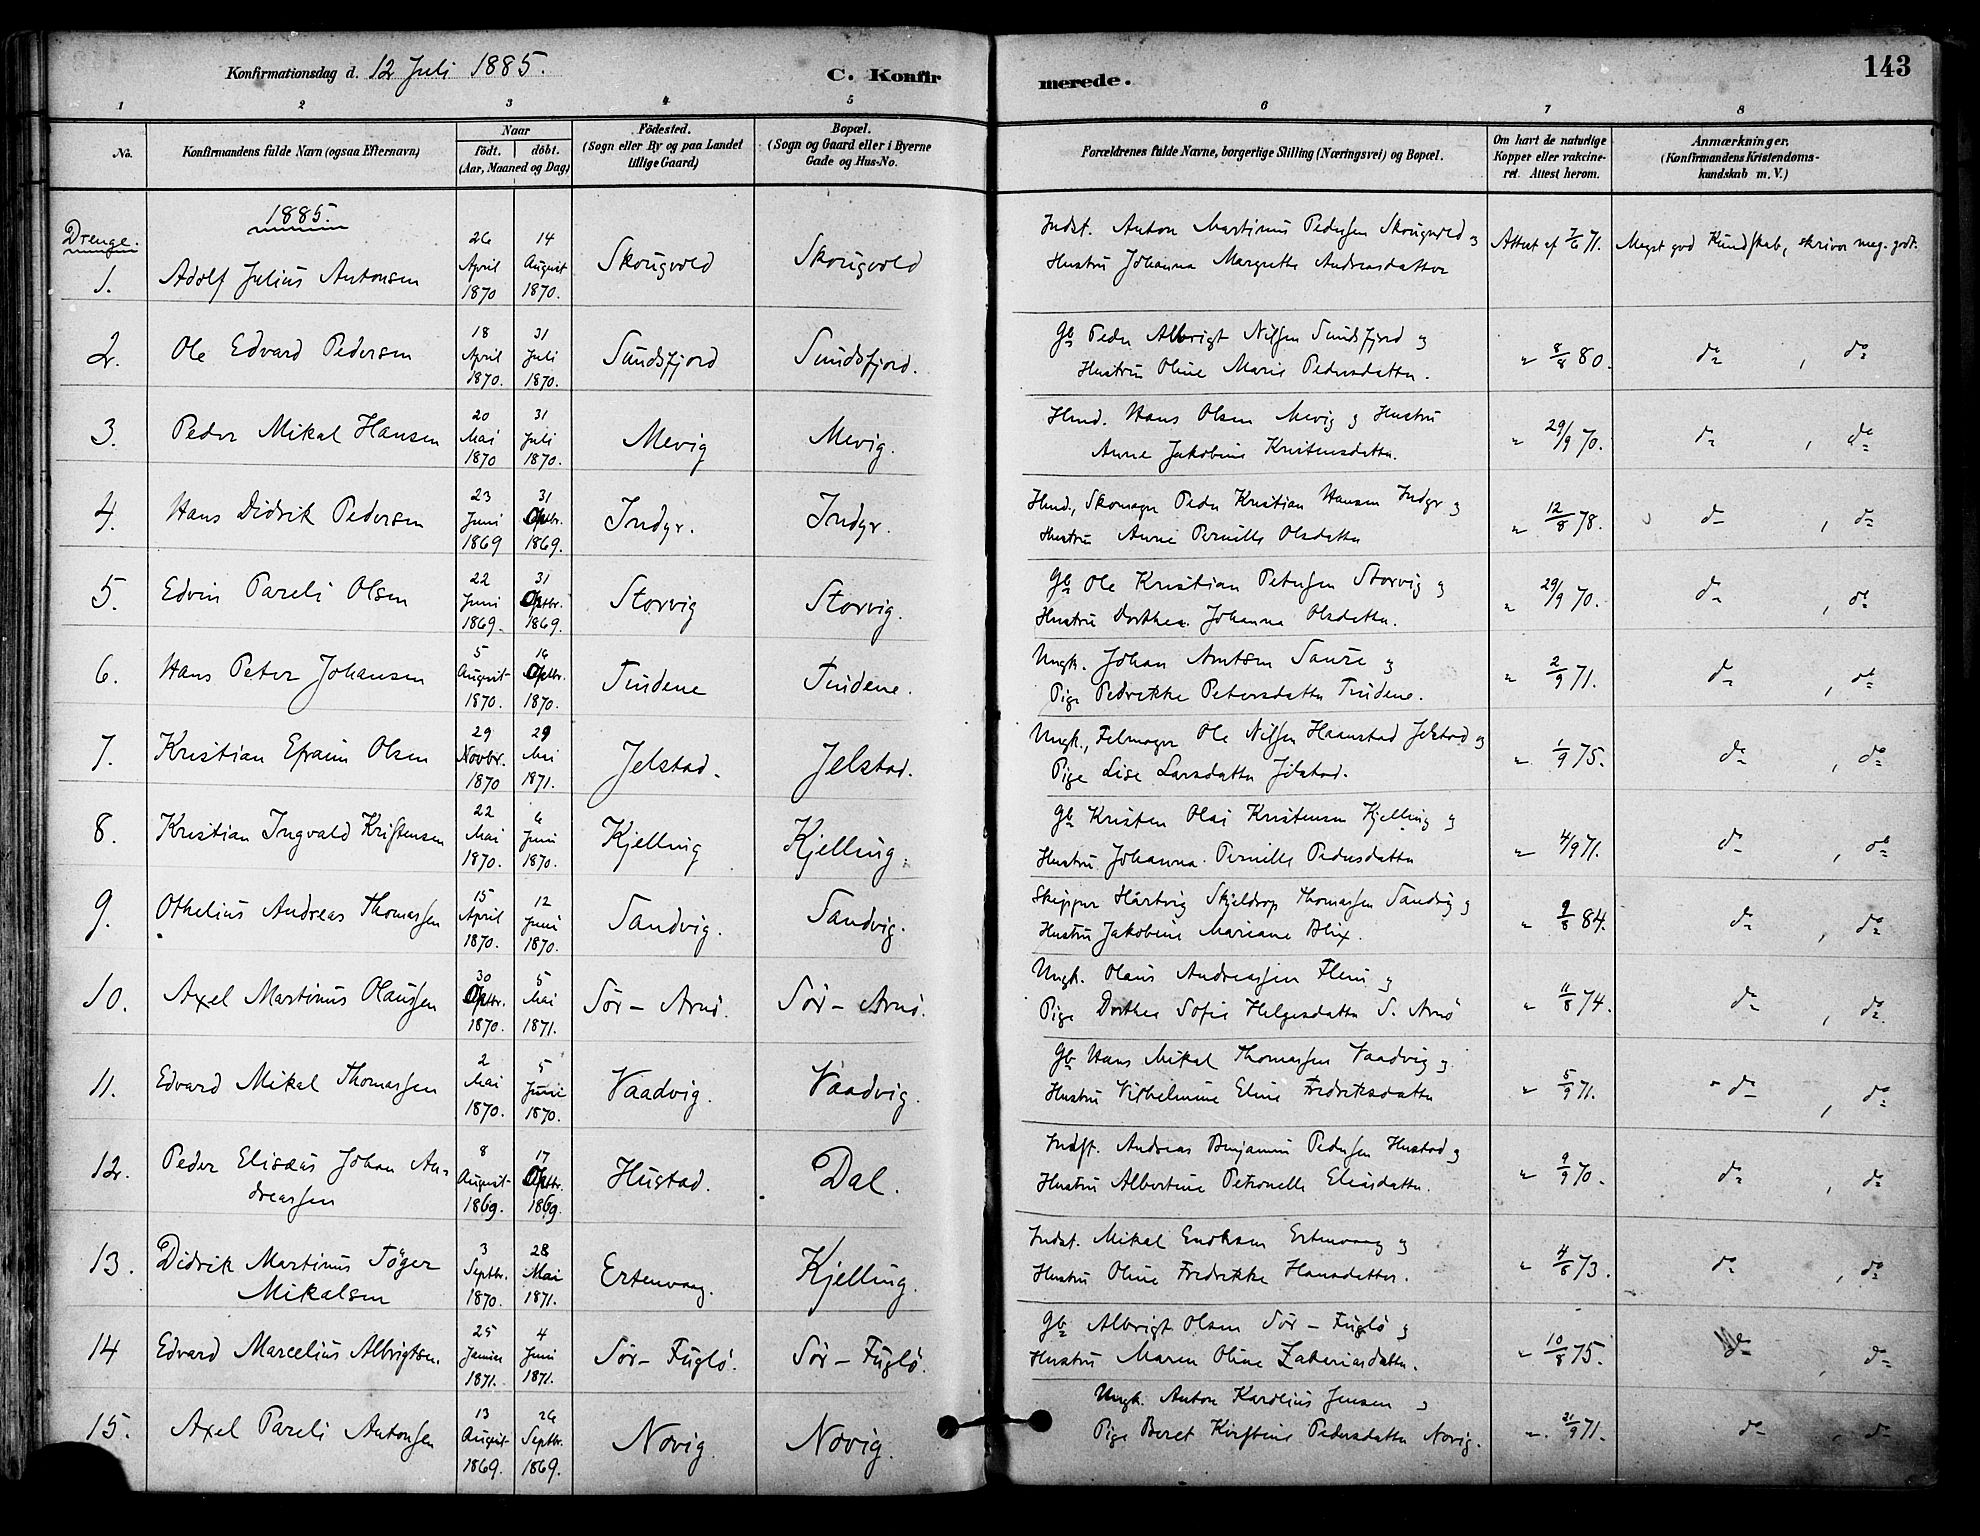 Konfirmationsdag d. 12 Juli 1885. C. Konfirmerede. 143
1 2 3 4 5 6 7 8
No. Konfirmandens fulde Navn (ogsaa Efternavn) Naar födt. döbt. (Aar, Maaned og Dag) Födested. (Sogn eller By og paa Landet tillige Gaard) Bopæl. (Sogn og Gaard eller i Byerne Gade og Hus-No. Forældrenes fulde Navne, borgerlige Stilling (Næringsvei) og Bopæl. Om havt de naturlige Kopper eller vakcineret. Attest herom. Anmærkninger. (Konfirmandens Kristendomskundskab m. V.)
1885.
Drenge.
1. Adolf Julius Antonsen 26 April 1870 14 August 1870. Skougvold Skougvold Indst. Anton Martinus Pedersen Skougvold og
Hustru Johanna Margrethe Andreasdatter Attest af 7/6 71. Meget god Kundskab, skriver meg. godt.
2. Ole Edvard Pedersen 18 April 1870. 31 Juli 1870. Sundsfjord Sundsfjord. Gb Peder Albrigt Nilssen Sundsfjord og
Hustru Oline Marie Pedersdatter. " 8/8 80. do , do
3. Peder Mikal Hansen 20 Mai 1870 31 Juli 1870. Mevig Mevig. Hmd. Hans Olsen Mevig og Hustru
Anne Jakobine Kristensdatter. " 29/9 70. do , do
4. Hans Didrik Pedersen 23 Juni 1869 31 Oktbr. 1869. Indyr. Indyr. Hmd., Skomager Peder Kristian Hansen Indyr og
Hustru Anne Pernille Olsdatter " 12/8 78. do , do
5. Edvin Pareli Olsen 22 Juni 1869. 31 Oktbr. 1869. Storvig Storvig. Gb Ole Kristian Petersen Storvig og
Hustru Dorthea Johanna Olsdatter. " 29/9 70. do , do
6. Hans Peter Johansen 5 August 1870. 16 Oktbr. 1870. Tindene Tindene. Ungk. Johan Arntsen Saure og
Pige Pedrikke Petersdatter Tindene. " 2/9 71. do , do
7. Kristian Efraim Olsen 29 Novbr. 1870 29 Mai 1871. Jelstad. Jelstad. Ungk., Ole Nilssen Haanstad Jelstad og
Pige Lise Larsdatter Jelstad. " 1/9 75. do , do
8. Kristian Ingvald Kristensen 22 Mai 1870. 6 Juni 1870. Kjelling Kjelling. Gb Kristen Olai Kristensen Kjelling og
Hustru Johanna Pernille Pedersdatter " 4/9 71. do , do
9. Othelius Andreas Thomassen 15 April 1870. 12 Juni 1870. Sandvig. Sandvig. Skipper Hartvig Skjeldrop Thomassen Sandvig og
Hustru Jakobine Mariane Blix. " 9/8 84. do , do
10. Axel Martinus Olaussen 30 Oktbr. 1870. 5 Mai 1871. Sör-Arnö. Sör-Arnö. Ungk. Olaus Andreassen og
Pige Dorthea Sofie Helgesdatter S. Arnö " 11/8 74. do , do
11. Edvard Mikal Thomassen 2 Mai 1870. 5 Juni 1870. Vaadvig. Vaadvig. Gb Hans Mikal Thomassen Vaadvig og
Hustru Vilhelmine Eline Fredriksdatter " 5/9 71. do , do
12. Peder Elisæus Johan Andreassen 8 August 1869. 17 Oktbr. 1869. Hustad. Dal. Indst. Andreas Benjamin Pedersen Hustad og
Hustru Albertine Petronelle Eliasdatter. " 9/9 70. do , do
13. Didrik Martinus Töger Mikalsen 3 Septbr. 1870. 28 Mai 1871. Ertenvaag. Kjelling. Indst. Mikal Ertenvaag og
Hustru Oline Fredrikke Hansdatter. " 4/8 73. do , do
14 Edvard Marcelius Albrigtsen. 25 Januar 1871. 4 Juni 1871. Sör-Fuglö. Sör-Fuglö. Gb Albrigt Olsen Sör-Fuglö og
Hustru Maren Oline Zakariasdatter. " 10/8 75. do , do
15. Axel Pareli Antonsen 13 August 1869. 26 Septbr. 1869. Novig. Novig. Ungk. Anton Karolius Jensen og
Pige Beret Kirstine Pedersdatter Novig. " 21/9 71. do , do